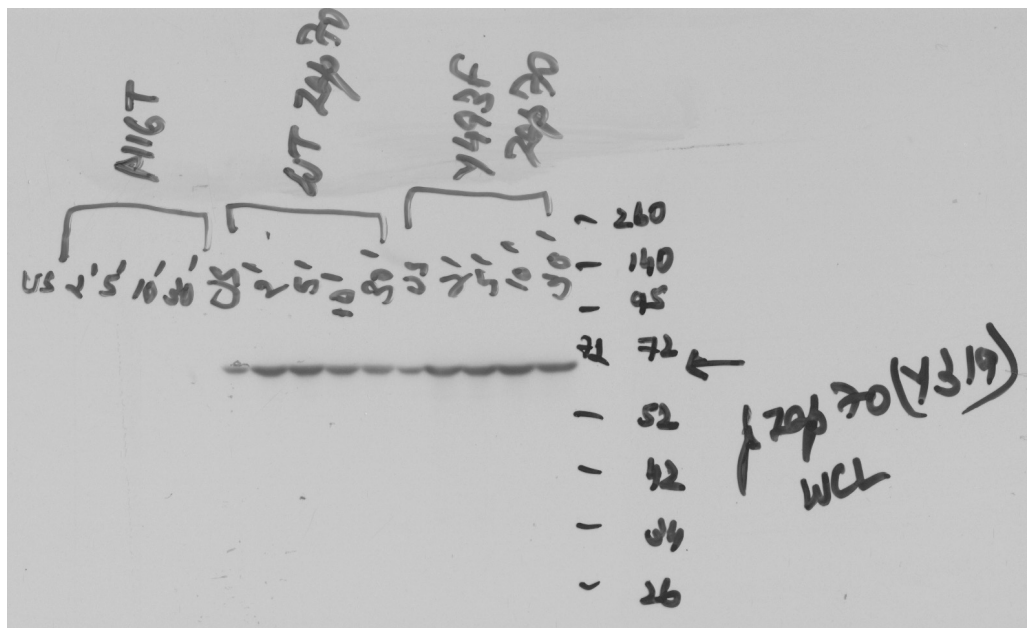 A116T
WT Zap 70
Y493F
Zap 70
US 2' 5' 10' 30' US 2' 5' 10' 30' US 2' 5' 10' 30'
- 260
- 140
- 95
72
- 52
- 42
- 34
- 26
←
pZap 70 (Y319)
WCL